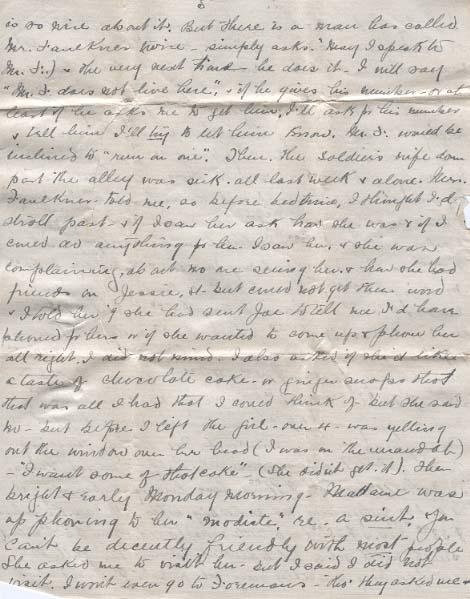 is so nice about it. But there is a man has called
Mr. Faulkner twice - simply asks. "May I speak to
Mr. F.) & the very next time he does it. I will say
"Mr. F. does not live here", & if he gives his number - or at
least if he asks me to get him, I'll ask for his number
& tell him I'll try to let him know. Mr. F. would be
inclined to "run on one". Then. the soldiers wife down
past the alley was sick. all last week & alone. Mrs.
Faulkner told me, so before bedtime, I thought I'd
stroll past - & if I saw her ask how she was & if I
could do anything for her. I saw her. & she was
complaining, about no one seeing her. & how she had
friends on Jessie, St. but could not get them word
& I told her if she had sent Joe to tell me I'd have
phoned for her - or if she wanted to come up & phone her
all right. I did not mind. I also asked if she'd like
a taste of chocolate cake - or ginger snaps - that
that was all I had that I could think of - but she said
no - but before I left the girl - over - was yelling
out the window over her head (I was on the verandah)
- "I want some of that cake" - (She didn't get it). Then
bright & early Monday Morning - Madame was
up phoning to her "modiste," re - a suit. You
can't be decently friendly with most people
She asked me to visit her - but I said I did not
visit. I won't even go to Foremans - tho' they asked me &